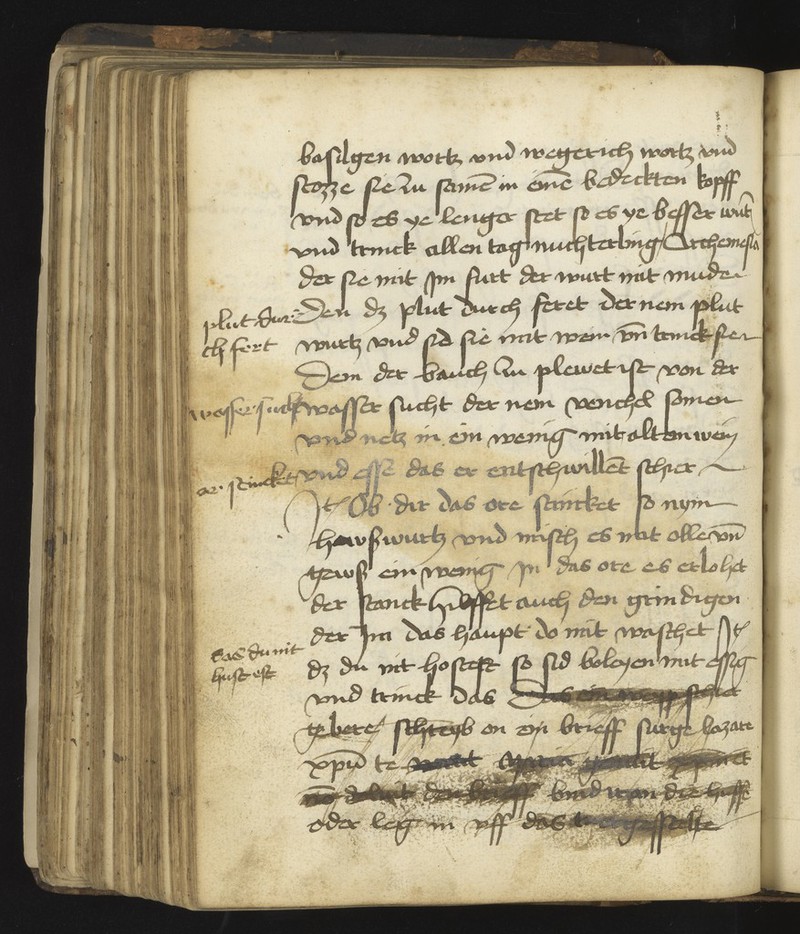 basilgen wortz vnd wegerich wortz vnd
stozze sie zu samē in einē bedeckten kopff
vnd so es ye lenger stet so es ye besser wirt
vnd trinck allen tag nuchterling Archemesia
der sie mit Im furt der wirt nit muder
plut dur
ch fert
Den dz plut durch feret der nem plut
wurtz vnd sid sie mit wein vn̄ trinck sie
Dem der bauch zu plewet ist von der
wasser sucht
wasser sucht der nem venchel somen
vnd netz in ein wenig mit altem wein
or stincket
vnd esse das er entschwillet schier
It Ob dir das ore stincket so nym
hawßwurtz vnd misch es mit olle vn̄
gewß ein wenig In das ore es erlohet
der stanck hilffet auch den grindigen
der Im das haupt do mit waschet It
das du nit
hustest
dz du nit hostest so sid boleyen mit essig
vnd trinck das
gebere schreyb on ein brieff surge lazare
xpūs te
bind ir an die huffe
oder leg in vff das